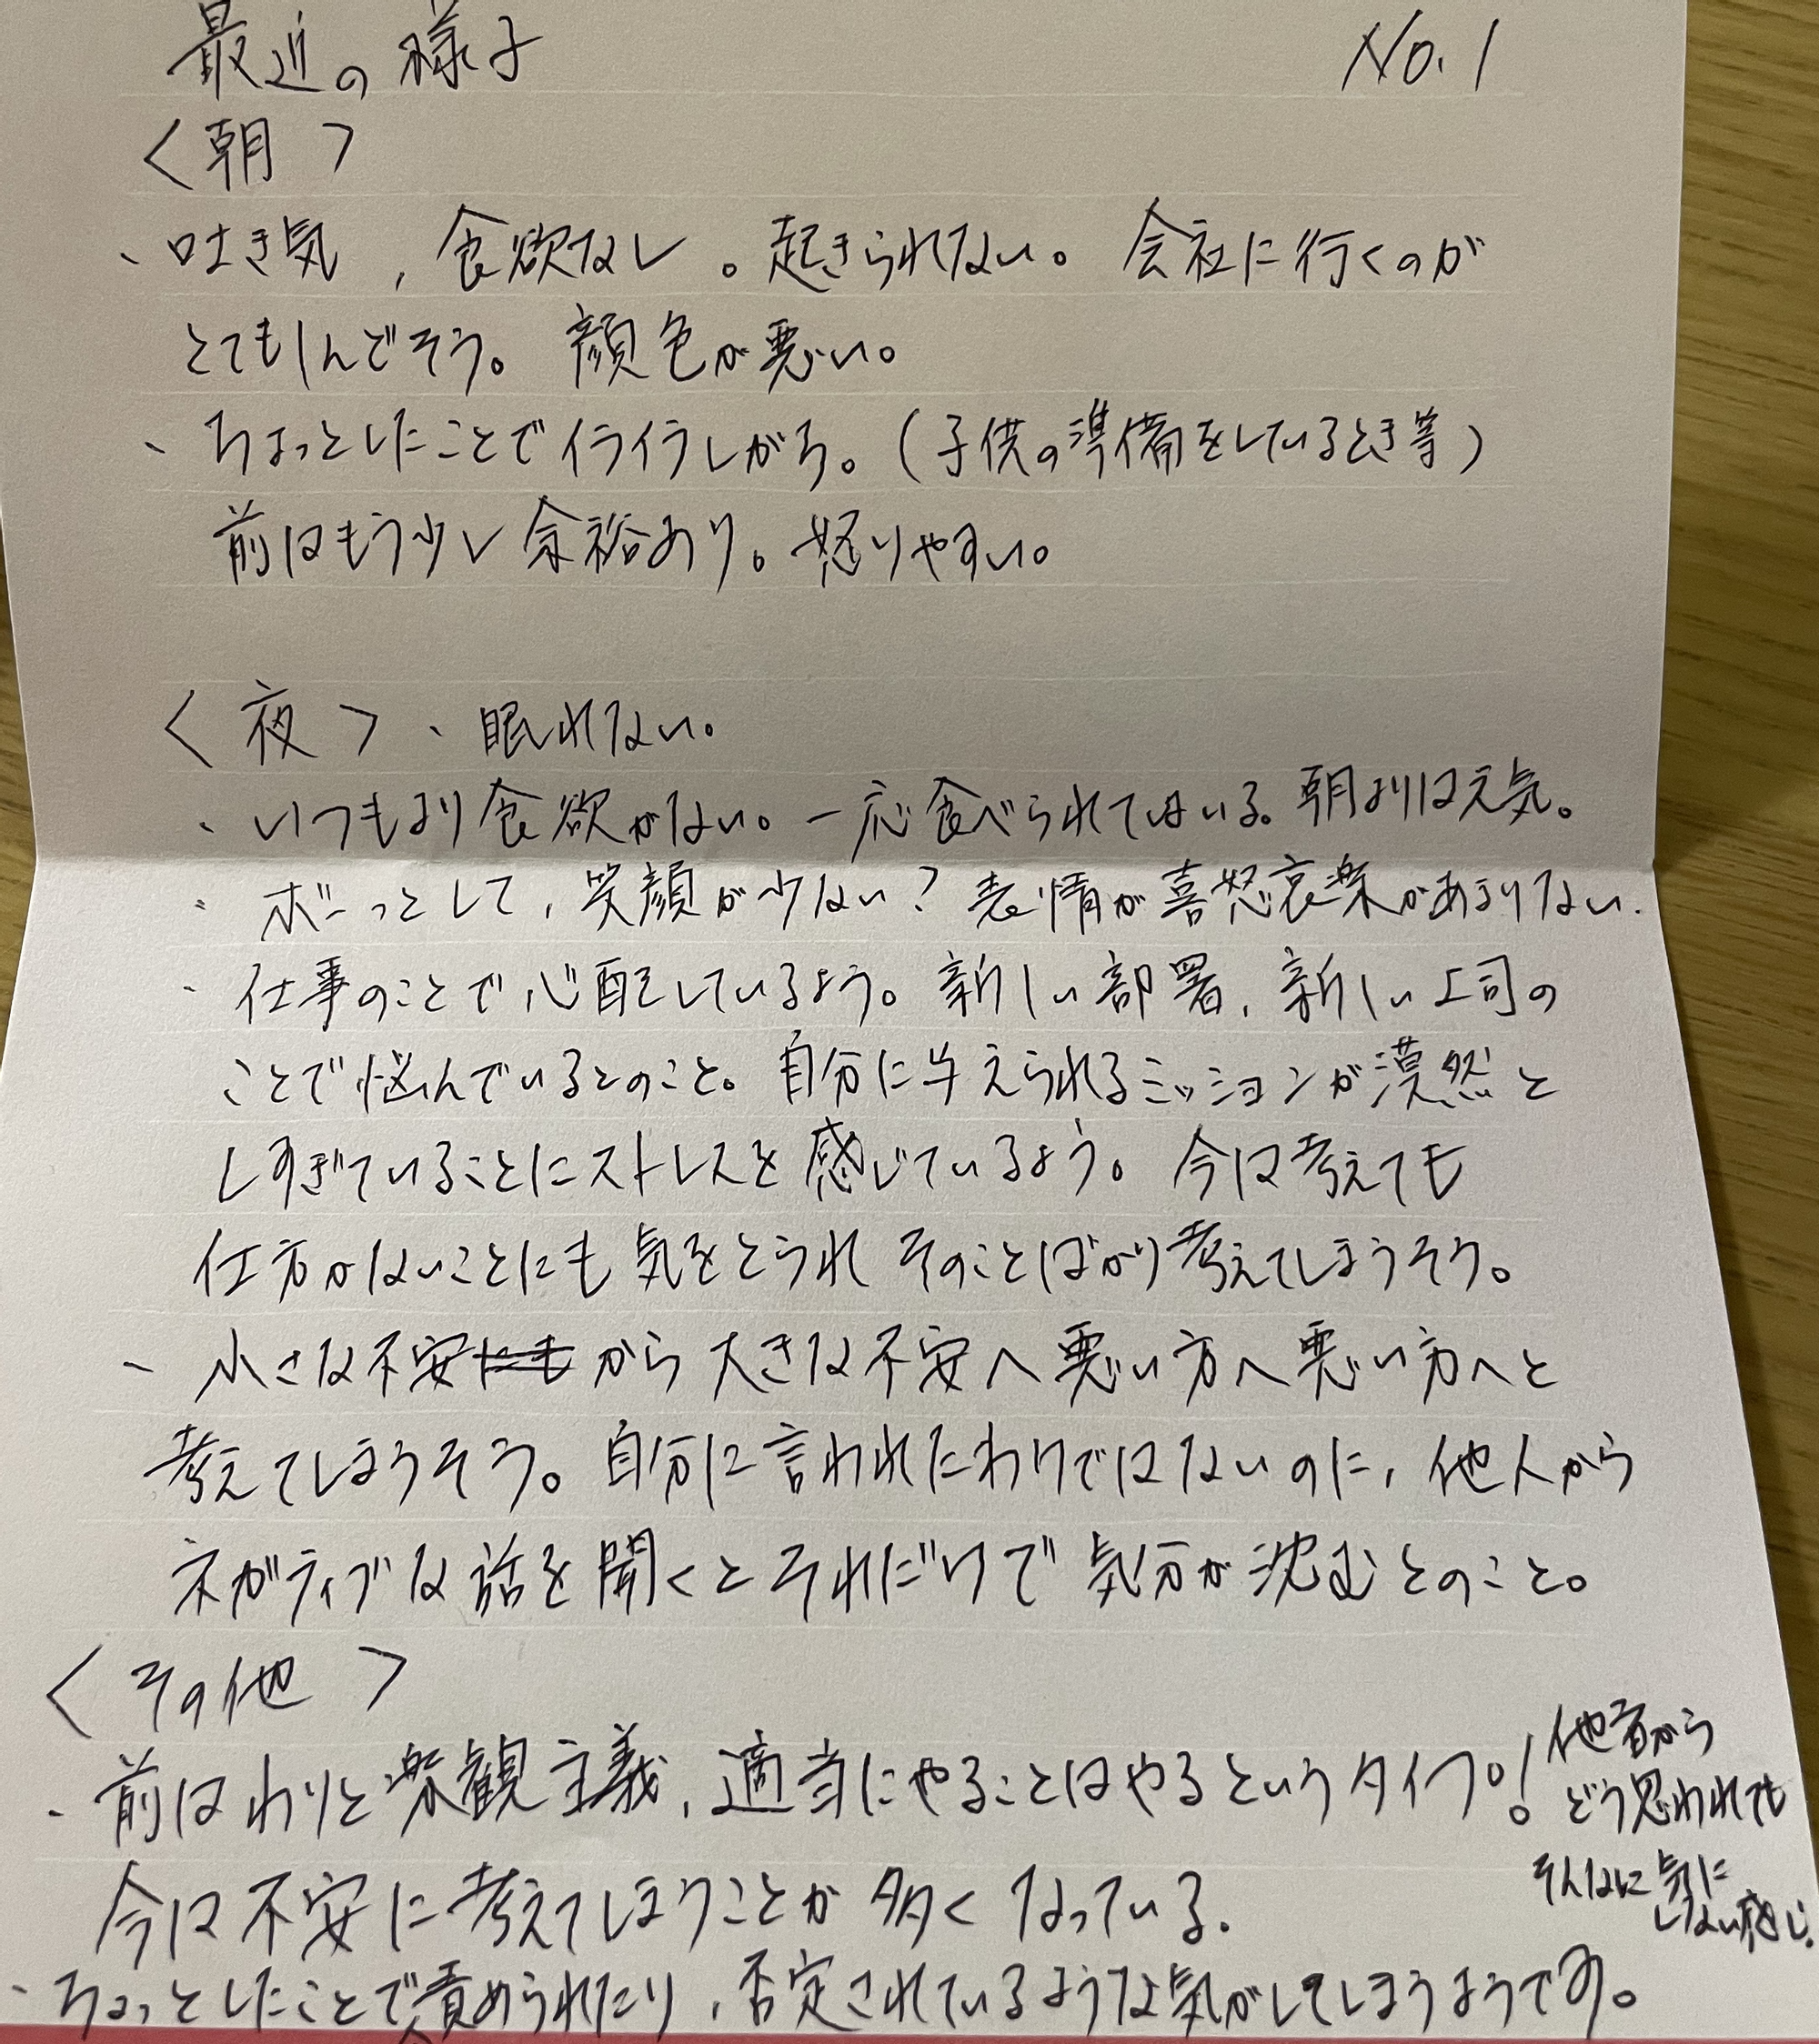 最近の様子 No.1
〈朝〉
、吐き気，食欲なし。起きられない。会社に行くのが
とてもしんどそう。顔色が悪い。
、ちょっとしたことでイライラしがち。(子供の準備をしているとき等)
前はもう少し余裕あり。怒りやすい。
〈夜〉、眠れない。
、いつもより食欲がない。一応食べられてはいる。朝よりは元気。
、ボーっとして，笑顔が少ない？表情が喜怒哀楽があまりない.
、仕事のことで心配しているよう。新しい部署，新しい上司の
ことで悩んでいるとのこと。自分に与えられるミッションが漠然と
しすぎていることにストレスを感じているよう。今は考えても
仕方がないことにも気をとられそのことばかり考えてしまうそう。
、小さな不安にもから大きな不安へ悪い方へ悪い方へと
考えてしまうそう。自分に言われたわけではないのに，他人から
ネガティブな話を聞くとそれだけで気分が沈むとのこと。
〈その他〉
、前はわりと楽観主義，適当にやることはやるというタイプ。！他者から
どう思われても
そんなに気に
しない感じ.
今は不安に考えてしまうことが多くなっている.
、ちょっとしたことで責められたり，否定されているような気がしてしまうようです。